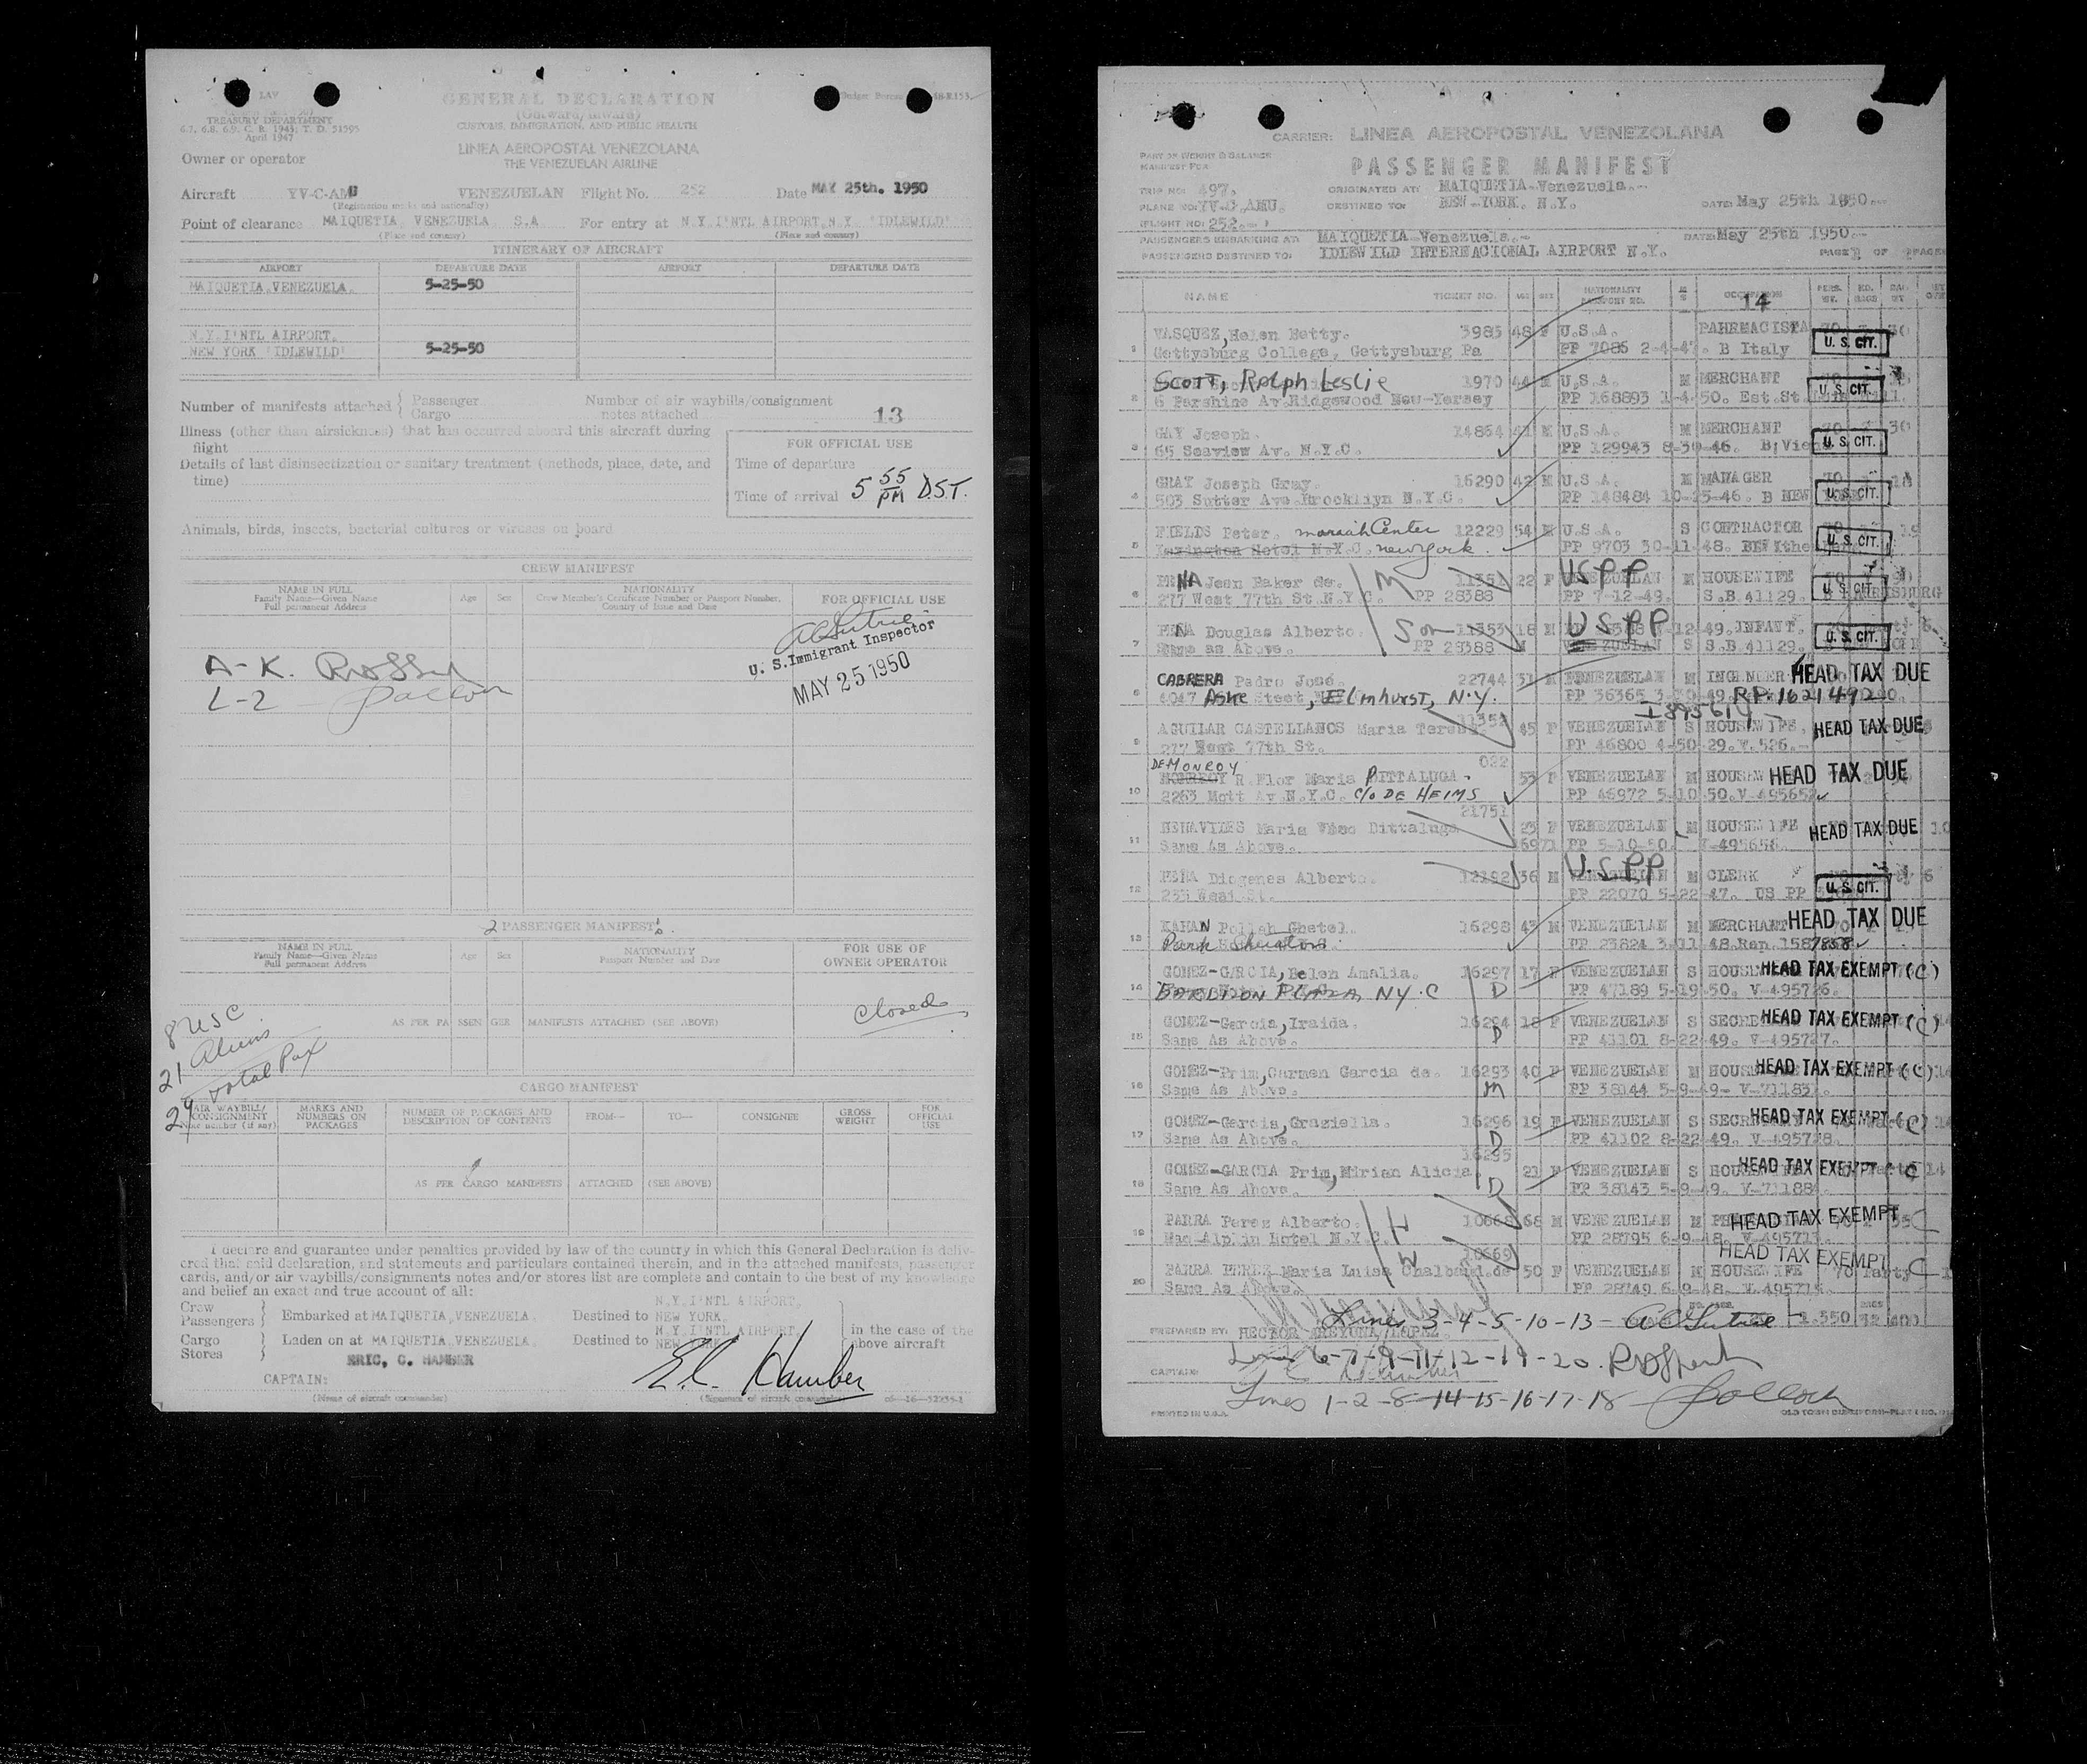 LAV
TREASURY DEPARTMENT
6.7, 6.8, 6.9, C. R. 1943; T. D. 51595
April 1947
GENERAL DECLARATION
(Outward/Inward)
CUSTOMS, IMMIGRATION, AND PUBLIC HEALTH
LINEA AEROPOSTAL VENEZOLANA
THE VENEZUELAN AIRLINE
Owner or operator
Aircraft YV-C-AMU VENEZUELAN Flight No. 252 Date MAY 25th. 1950
(Registration marks and nationality)
Point of clearance MAIQUETIA, VENEZUELA, S.A For entry at N.Y.I'NTL AIRPORT,N.Y. 'IDLEWILD'
(Place and country) (Place and country)
ITINERARY OF AIRCRAFT
AIRPORT DEPARTURE DATE AIRPORT DEPARTURE DATE
MAIQUETIA,VENEZUELA. 5-25-50
N.Y.I'NTL AIRPORT,
NEW YORK 'IDLEWILD' 5-25-50
Number of manifests attached Passenger Number of air waybills/consignment
Cargo notes attached 13
Illness (other than airsickness) that has occurred aboard this aircraft during
flight
Details of last disinsectization or sanitary treatment (methods, place, date, and
time)
FOR OFFICIAL USE
Time of departure
Time of arrival 5 55 PM DST.
Animals, birds, insects, bacterial cultures or viruses on board
CREW MANIFEST
NAME IN FULL NATIONALITY FOR OFFICIAL USE
Family Name—Given Name Age Sex Crew Member's Certificate Number or Passport Number,
Full permanent Address Country of Issue and Date
U. S. Immigrant Inspector
MAY 25 1950
A-K.
L-2
2 PASSENGER MANIFEST
NAME IN FULL NATIONALITY FOR USE OF
Family Name—Given Name Age Sex Passport Number and Date OWNER OPERATOR
Full permanent Address
Closed
8 USC
21 Aliens
29 Total Pax
AS PER PA SSEN GER MANIFESTS ATTACHED (SEE ABOVE)
CARGO MANIFEST
AIR WAYBILL/ MARKS AND NUMBER OF PACKAGES AND FROM— TO— CONSIGNEE GROSS FOR
CONSIGNMENT NUMBERS ON DESCRIPTION OF CONTENTS WEIGHT OFFICIAL
Note number (if any) PACKAGES USE
AS PER CARGO MANIFESTS ATTACHED (SEE ABOVE)
I declare and guarantee under penalties provided by law of the country in which this General Declaration is deliv-
ered that said declaration, and statements and particulars contained therein, and in the attached manifests, passenger
cards, and/or air waybills/consignments notes and/or stores list are complete and contain to the best of my knowledge
and belief an exact and true account of all:
Crew N.Y.I'NTL AIRPORT,
Passengers Embarked at MAIQUETIA,VENEZUELA Destined to NEW YORK.
Cargo Laden on at MAIQUETIA,VENEZUELA. Destined to N.Y.I'NTL AIRPORT, NEW YORK in the case of the
Stores above aircraft
ERIC, C. HAMBER
CAPTAIN: E.C. Hamber
(Name of aircraft commander) (Signature of aircraft commander)
CARRIER: LINEA AEROPOSTAL VENEZOLANA
PART OF WEIGHT & BALANCE
MANIFEST FOR
PASSENGER MANIFEST
TRIP NO: 497. ORIGINATED AT: MAIQUETIA-Venezuela.-
PLANE NO: YV-C-AMU. DESTINED TO: NEW-YORK. N.Y. DATE: May 25th 1950.-
FLIGHT NO: 252.-
PASSENGERS EMBARKING AT: MAIQUETIA-Venezuela.- DATE: May 25th 1950.-
PASSENGERS DESTINED TO: IDLEWILD INTERNACIONAL AIRPORT N.Y. PAGE OF PAGES
NAME TICKET NO. AGE SEX NATIONALITY PASSPORT NO. M S OCCUPATION 14
1 VASQUEZ,Helen Betty. 3985 48 F U.S.A. PAHRMACISTA
Gettysburg College, Gettysburg Pa PP 7085 2-4-47. B Italy U.S. CIT.
2 SCOTT, Ralph Leslie 3970 44 M U.S.A. M MERCHANT
6 Pershine Av Ridgewood New-Yersey PP 168893 1-4-50. U.S. CIT.
3 GAY Joseph. 14864 41 M U.S.A. M MERCHANT 30
65 Seaview Av. N.Y.C. PP 129943 8-30-46. U.S. CIT.
4 GRAY Joseph Gray. 16290 42 M U.S.A. M MANAGER
503 Sutter Ave Brooklyn N.Y.C. PP 148484 10-25-46. B NEW U.S. CIT.
5 FIELDS Peter. Center 12229 54 M U.S.A. S CONTRACTOR
Lexington Hotel N.Y.C. new york. PP 9703 30-11-48. U.S. CIT.
6 PENA Jean Baker de. M 11351 22 F VENEZUELAN USPP M HOUSEWIFE
277 West 77th St N.Y.C. PP 28388 PP 7-12-49. S.B.41129. U.S. CIT.
7 PENA Douglas Alberto. Son 11353 18 M USPP INFANT.
Same as Above. PP 28388 VENEZUELAN S S.B.41129. U.S. CIT.
8 CABRERA Pedro José. 22744 31 M VENEZUELAN M INGENEER HEAD TAX DUE
4047 Ashe Steet, Elmhurst, N.Y. PP 36365 RP.1621492
9 AGUILAR CASTELLANOS Maria Teresa 11352 45 F VENEZUELAN S HOUSEWIFE. HEAD TAX DUE
277 West 77th St. PP 46800 4-50-29.V.526.-
10 DE MONROY R. Flor Maria PITTALUGA. 022 53 F VENEZUELAN M HOUSEW HEAD TAX DUE
2263 Mott Av N.Y.C. C/O DE HEIMS PP 46972 5-10-50.V-495657
11 BENAVIDES Maria Dittaluga 21751 25 F VENEZUELAN M HOUSEWIFE HEAD TAX DUE
Same As Above. 46971 PP 5-10-50. V-495656.
12 PEÑA Diogenes Alberto. 12192 36 M U.S.PP VENEZUELAN M CLERK
235 West St. PP 22070 5-22-47. US PP U.S. CIT.
13 KAHAN Pollah Ghetel. 16298 43 M VENEZUELAN M MERCHANT HEAD TAX DUE
Park Sheraton PP 23824 3-11-48.Rep.1587858
14 GOMEZ-GARCIA, Belen Amalia. 16297 17 F VENEZUELAN S HOUSE HEAD TAX EXEMPT (C)
PLAZA, NY.C D PP 47189 5-19-50. V-495726.
15 GOMEZ-Garcia, Iraida. 16294 18 F VENEZUELAN S SECRE HEAD TAX EXEMPT (C)
Same As Above. D PP 41101 8-22-49. V-495727.
16 GOMEZ-Prim,Carmen Garcia de. 16293 40 F VENEZUELAN M HOUSE HEAD TAX EXEMPT (C)
Same As Above. M PP 38144 5-9-49- V-711837.
17 GOMEZ-Garcia,Graziella. 16296 19 F VENEZUELAN S SECR HEAD TAX EXEMPT (C)
Same As Above. D PP 41102 8-22-49. V-495728.
18 GOMEZ-GARCIA Prim, Mirian Alicia. 16295 21 F VENEZUELAN S HOUSE HEAD TAX EXEMPT C
Same As Above. D PP 38143 5-9-49. V-711884.
19 PARRA Perez Alberto. H 10668 68 M VENEZUELAN M HEAD TAX EXEMPT C
Mac-Alplin Hotel N.Y.C. PP 28795 6-9-48. V-495713.
20 PARRA PEREZ Maria Luisa Chalbaud.de W 10669 50 F VENEZUELAN M HOUSEWIFE HEAD TAX EXEMPT C
Same As Above. PP 28749 6-9-48.
Lines 3-4-5-10-13 - 1.350 32 400
PREPARED BY: HECTOR AREYUNA/LOPEZ.
Lines 6-7-9-11-12-19-20.
CAPTAIN:
Lines 1-2-8-14-15-16-17-18
PRINTED IN U.S.A.